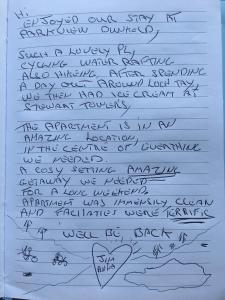 Hi
ENJOYED OUR STAY AT
PARKVIEW DUNKELD,
SUCH A LOVELY PL,
CYCLING WATER RAFTING
ALSO HIKING, AFTER SPENDING
A DAY OUT AROUND LOCH TAY,
WE THEN HAD ICE CREAM AT
STEWART TOWERS,
THE APARTMENT IS IN AN
AMAZING LOCATION,
IN THE CENTRE OF EVERYTHING
WE NEEDED.
A COSY SETTING AMAZING
GETAWAY WE NEEDED
FOR A LONG WEEKEND.
APARTMENT WAS IMMENSLY CLEAN
AND FACILITIES WERE TERRIFIC
WELL BE BACK
JIM